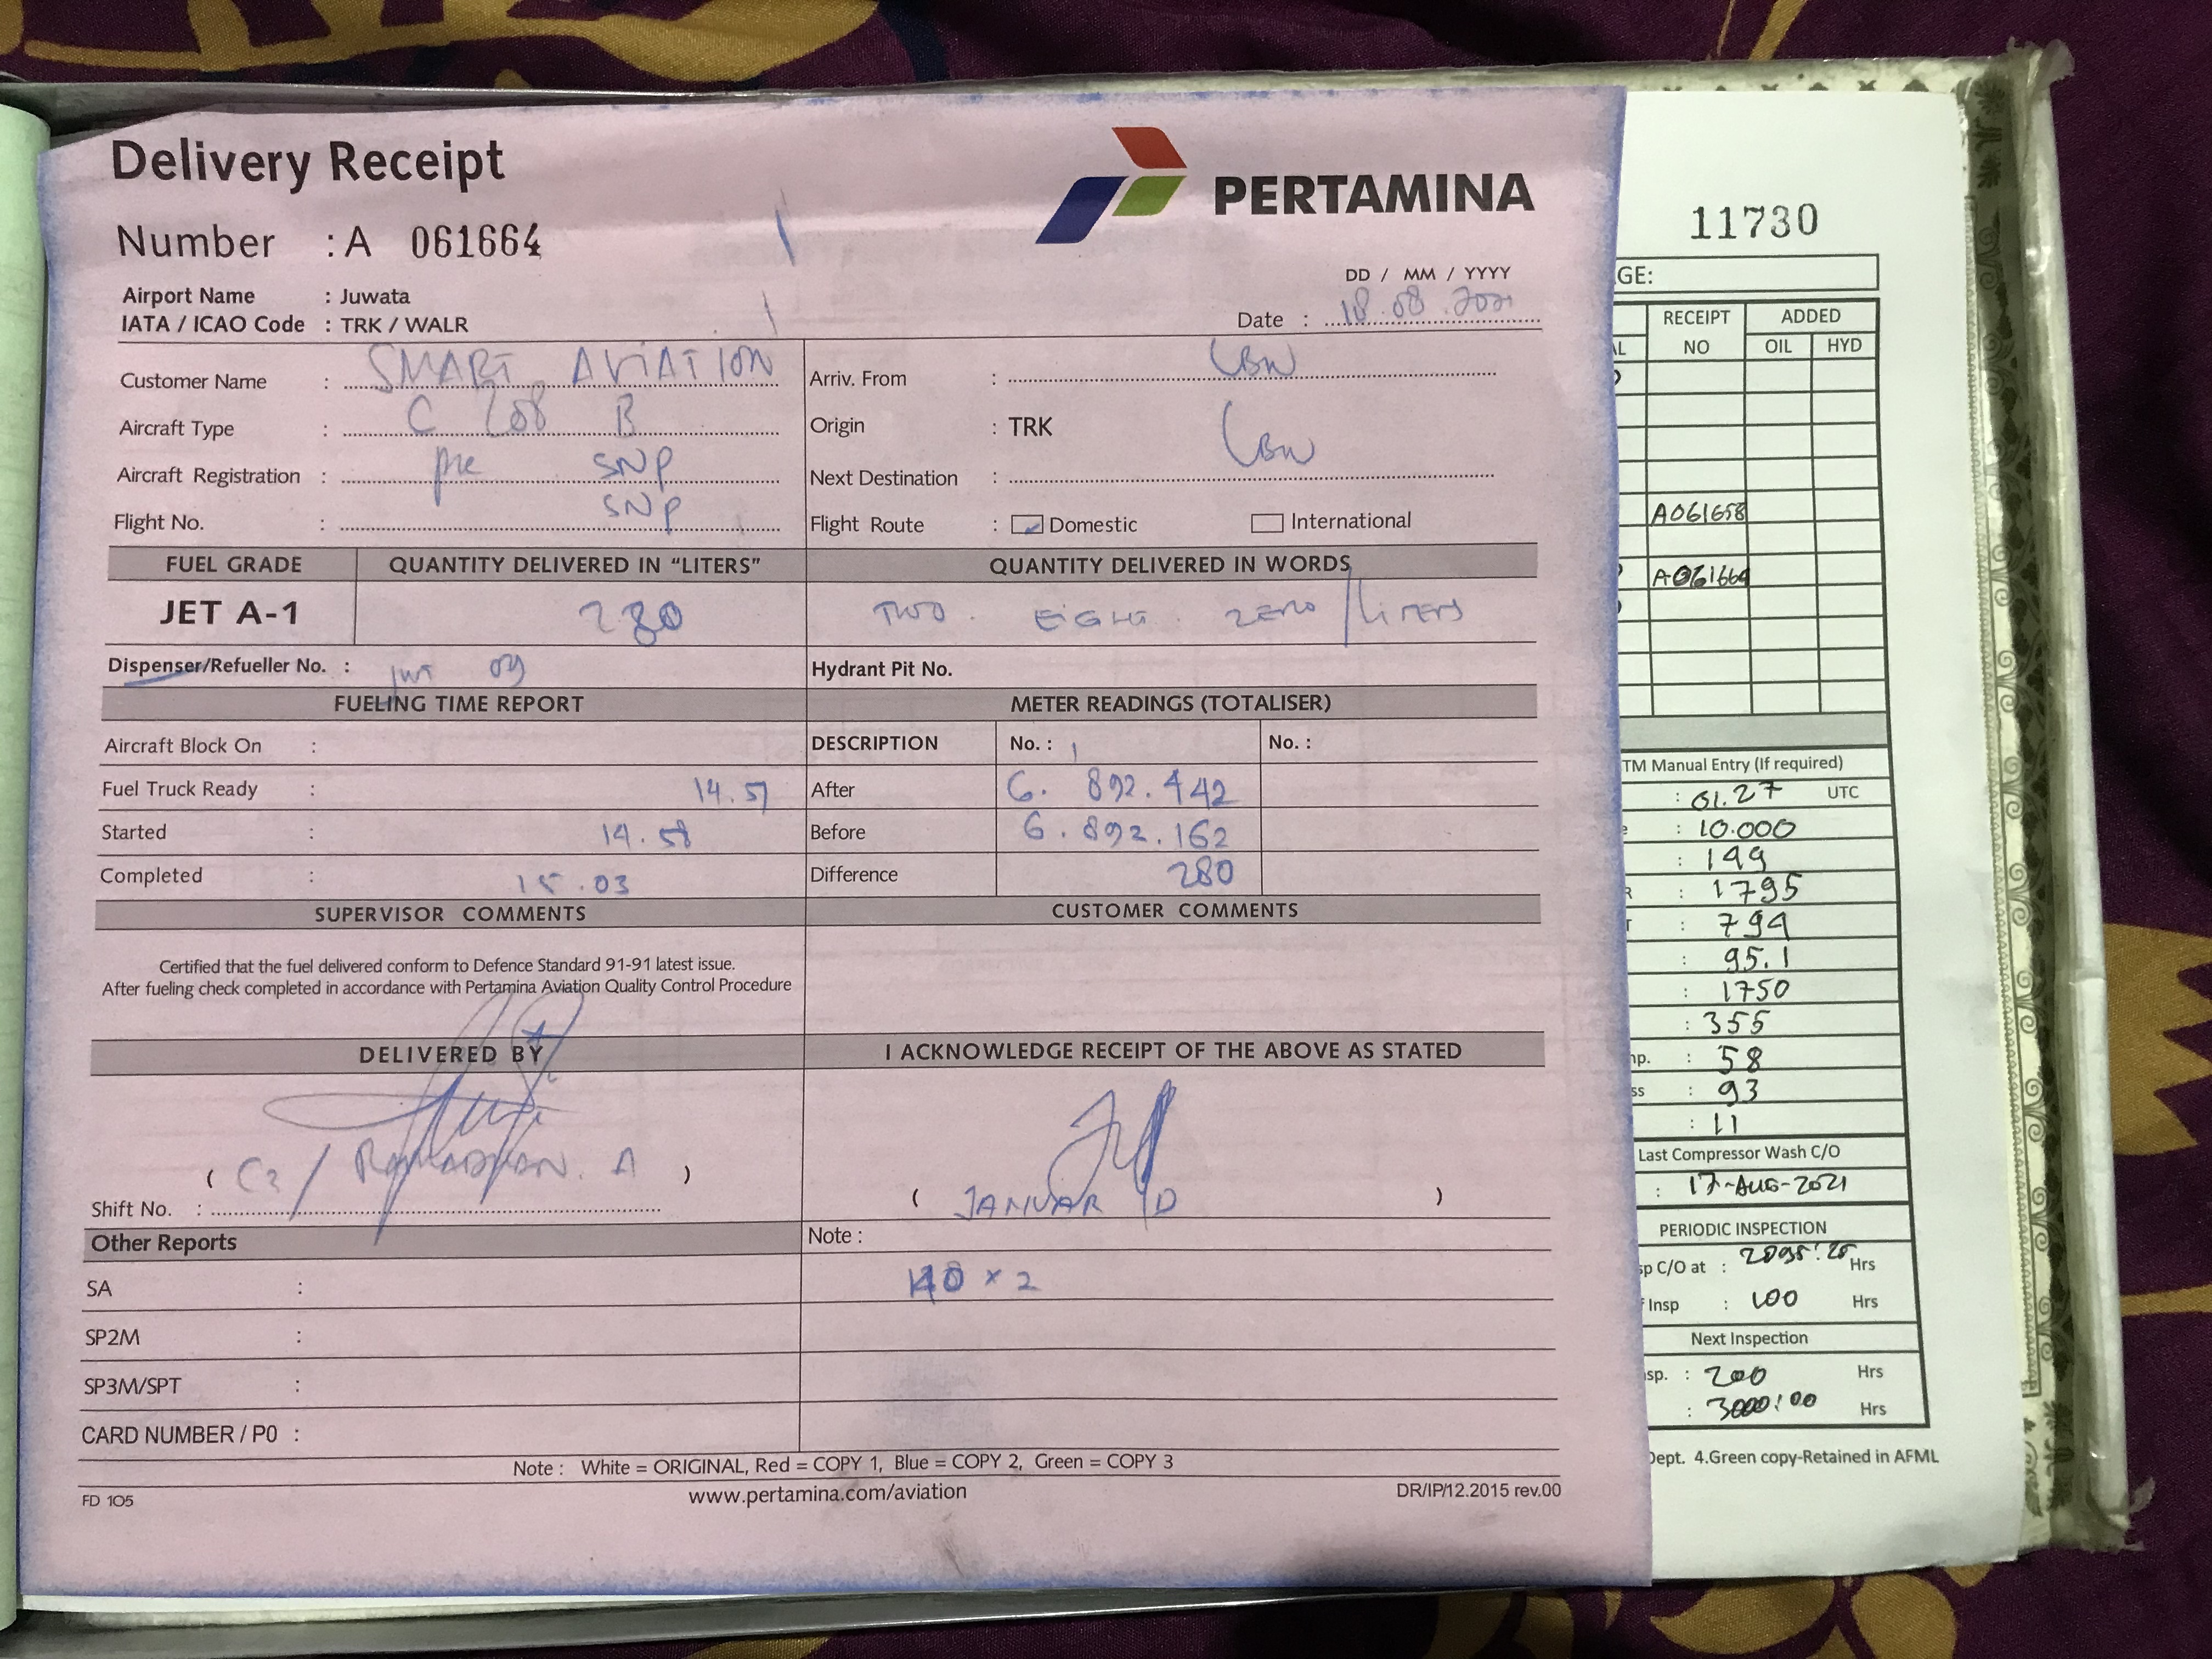 Delivery Receipt
PERTAMINA
Number : A 061664
Airport Name : Juwata
IATA / ICAO Code : TRK / WALR
DD / MM / YYYY
Date : 18.08.2021
Customer Name : SMART AVIATION
Arriv. From : LBW
Aircraft Type : C 208 B
Origin : TRK
Aircraft Registration : PK SNP
Next Destination : LBW
Flight No. : SNP
Flight Route : Domestic International
FUEL GRADE QUANTITY DELIVERED IN "LITERS" QUANTITY DELIVERED IN WORDS
JET A-1 280 TWO EIGHT ZERO / LITERS
Dispenser/Refueller No. : 09
Hydrant Pit No.
FUELING TIME REPORT METER READINGS (TOTALISER)
Aircraft Block On : DESCRIPTION No. : 1 No. :
Fuel Truck Ready : 14.57 After 6. 892.442
Started : 14.58 Before 6.892.162
Completed : 15.03 Difference 280
SUPERVISOR COMMENTS CUSTOMER COMMENTS
Certified that the fuel delivered conform to Defence Standard 91-91 latest issue.
After fueling check completed in accordance with Pertamina Aviation Quality Control Procedure
DELIVERED BY I ACKNOWLEDGE RECEIPT OF THE ABOVE AS STATED
( C2 / RAMADHAN. A )
( JANUAR D )
Shift No. :
Other Reports Note :
SA : 140 x 2
SP2M :
SP3M/SPT :
CARD NUMBER / P0 :
Note : White = ORIGINAL, Red = COPY 1, Blue = COPY 2, Green = COPY 3
FD 105 www.pertamina.com/aviation DR/IP/12.2015 rev.00
11730
GE:
RECEIPT ADDED
NO OIL HYD
A061658
A061664
TM Manual Entry (If required)
: 01.27 UTC
: 10.000
: 149
: 1795
: 794
: 95.1
: 1750
: 355
: 58
: 93
: 11
Last Compressor Wash C/O
: 17-AUG-2021
PERIODIC INSPECTION
sp C/O at : Hrs
Insp : 100 Hrs
Next Inspection
sp. : 200 Hrs
: 3000:00 Hrs
Dept. 4.Green copy-Retained in AFML